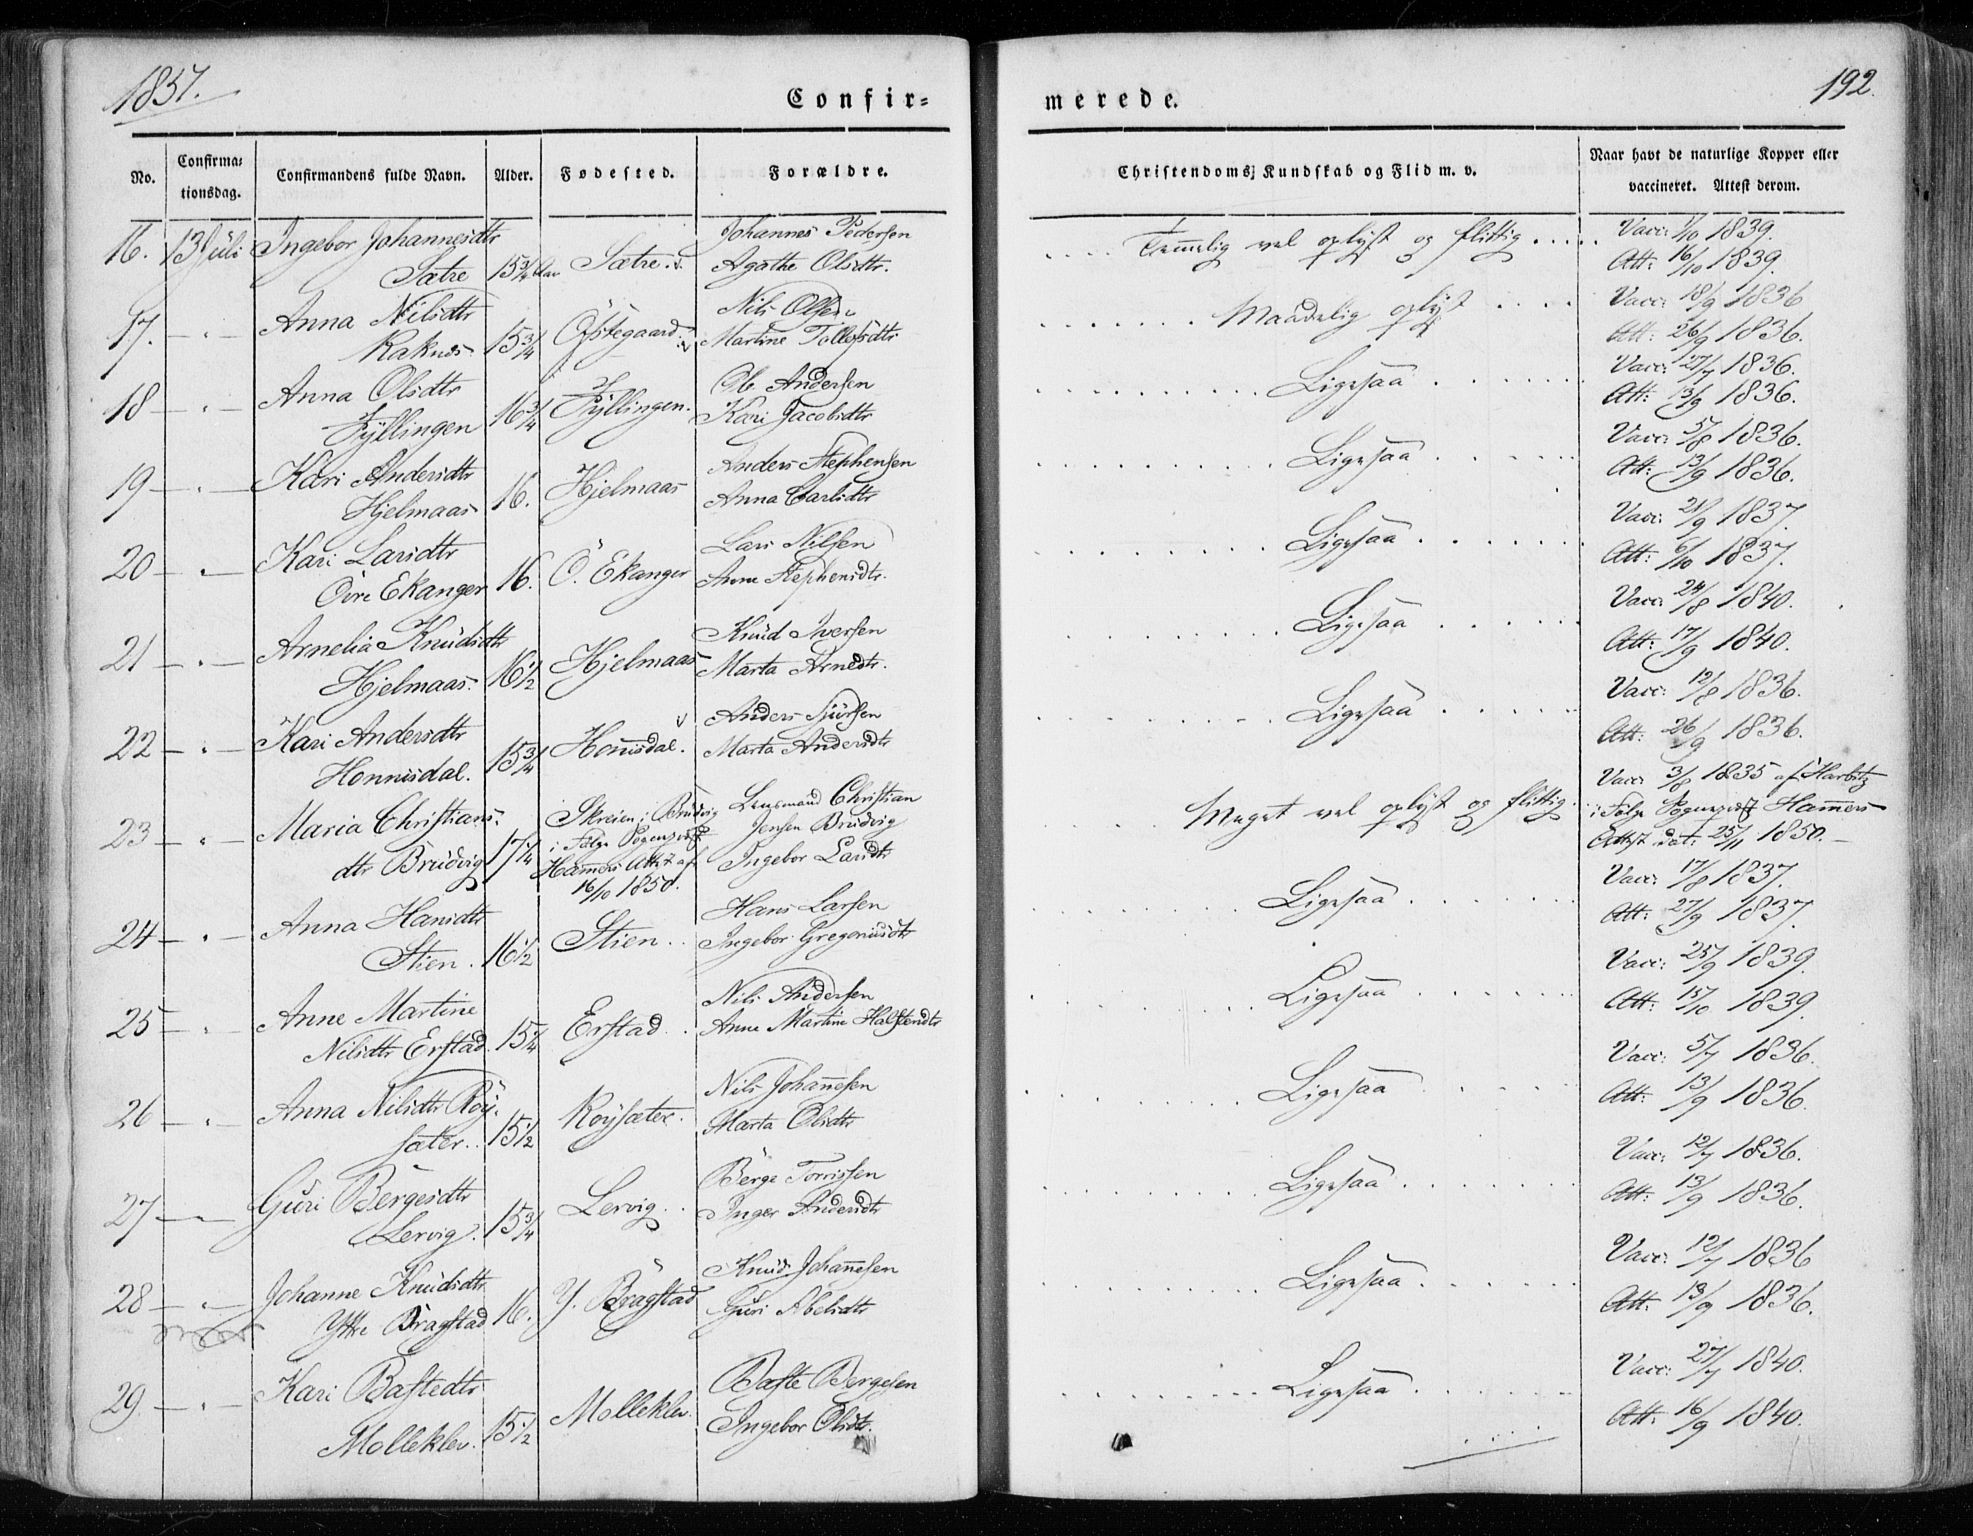 1851.
192.
Confir=
merede.
No.
Confirma=
tionsdag.
Confirmandens fulde Navn.
Alder.
Fødested.
Forældre.
Christendoms-Kundskab og Flid m. v.
Naar havt de naturlige Kopper eller
vaccineret. Attest derom.
16. 13 Juli Ingebor Johannesdtr Johannes Pedersen
Sætre 15 3/4 Aar Sætre. Agathe Olsdtr.
.... Temmelig vel oplyst og flittig ..... Vacc: 1/10 1839.
Att: 16/10 1839.
17. - " - Anna Nilsdtr Nils Olsen
Raknes 15 3/4 Østegaard Martine Tollefsdtr
....... Maadelig oplyst .... Vacc: 18/9 1836
Att: 26/9 1836.
18 - " - Anna Olsdtr Ole Andersen
Fyllingen 16 3/4 Fyllingen. Kari Jacobsdtr
Ligesaa Vacc: 27/7 1836.
Att: 13/9 1836.
19 - " - Kari Andersdtr Anders Stephensen
Hjelmaas 16. Hjelmaas Anna Carlsdtr
Ligesaa Vacc: 5/8 1836.
Att: 13/9 1836.
20 - " - Kari Larsdtr Lars Nilsen
Övre Ekanger 16. Ö. Ekanger Anne Stephensdtr.
Ligesaa Vacc: 21/9 1837.
Att: 6/10 1837.
21 - " - Arnelia Knudsdtr Knud Iversen
Hjelmaas. 16 1/2 Hjelmaas Marta Arnedtr.
Ligesaa Vacc: 24/8 1840.
Att: 17/9 1840.
22 - " - Kari Andersdtr Anders Sjursen
Honnisdal. 15 3/4 Honnisdal. Marta Andersdtr
Ligesaa Vacc: 12/8 1836.
Att: 26/9 1836.
23 " Maria Christians- Skreien i Brudvig Lensmand Christian
dtr Brudvig 17 1/4 i Følge Sognepræst Jensen Brudvig
Hammers Attest af Ingebor Larsdtr
16/10 1850.
Meget vel oplyst og flittig. Vacc: 3/8 1835 af Harbitz
i Følge Sognepræst Hammers
Attest dat: 25/11 1850.
24 - " - Anna Hansdtr Hans Larsen
Stien. 16 1/2 Stien .. Ingebor Gregoriusdtr
Ligesaa Vacc: 17/8 1837.
Att: 27/9 1837.
25 - " - Anne Martine Nils Andersen
Nilsdtr Erstad. 15 1/4 Erstad .. Anne Martine Halstendtr
Ligesaa Vacc: 25/9 1839.
Att: 15/10 1839.
26 - " - Anna Nilsdtr Röy- Nils Johannesen
sæter.. 15 1/2 Röysæter. Marta Olsdtr
Ligesaa Vacc: 5/7 1836.
Att: 13/9 1836.
27 - " - Guri Bergesdtr Berge Torrissen
Lervig. 15 3/4 Lervig .. Inger Andersdtr
Ligesaa Vacc: 12/7 1836.
Att: 13/9 1836.
28 - " - Johanne Knudsdtr Knud Johannesen
Yttre Bragstad 16. Y. Bragstad Guri Abelsdtr
Ligesaa Vacc: 12/7 1836
Att: 13/9 1836.
29 - " - Kari Bastedtr Baste Bergesen
Molleklev. 15 1/2 Molleklev. Ingebor Olsdtr.
Ligesaa Vacc: 27/7 1840.
Att: 16/9 1840.